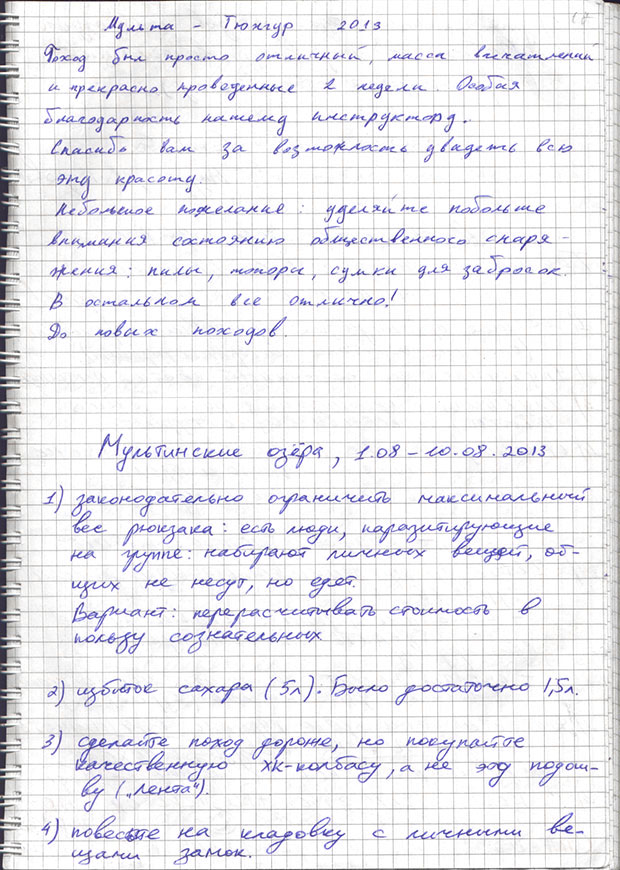 Мульта - Тюнгур 2013
Поход был просто отличный, масса впечатлений
и прекрасно проведенные 2 недели. Особая
благодарность нашему инструктору.
Спасибо вам за возможность увидеть всю
эту красоту.
Небольшое пожелание: уделяйте побольше
внимания состоянию общественного снаря-
жения: пилы, топоры, сумки для забросок.
В остальном все отлично!
До новых походов.
Мультинские озёра, 1.08 - 10.08.2013
1) законодательно ограничить максимальный
вес рюкзака: есть люди, паразитирующие
на группе: набирают личных вещей, об-
щих не несут, но едят.
Вариант: перерасчитывать стоимость в
пользу сознательных
2) избыток сахара (5л). Было достаточно 1,5л.
3) сделайте поход дороже, но покупайте
качественную ХК-колбасу, а не эту подош-
ву („Лента").
4) повесьте на кладовку с личными ве-
щами замок.